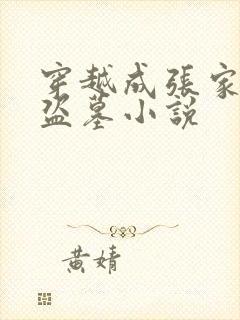 穿越成張家
盜墓小說
黃婧